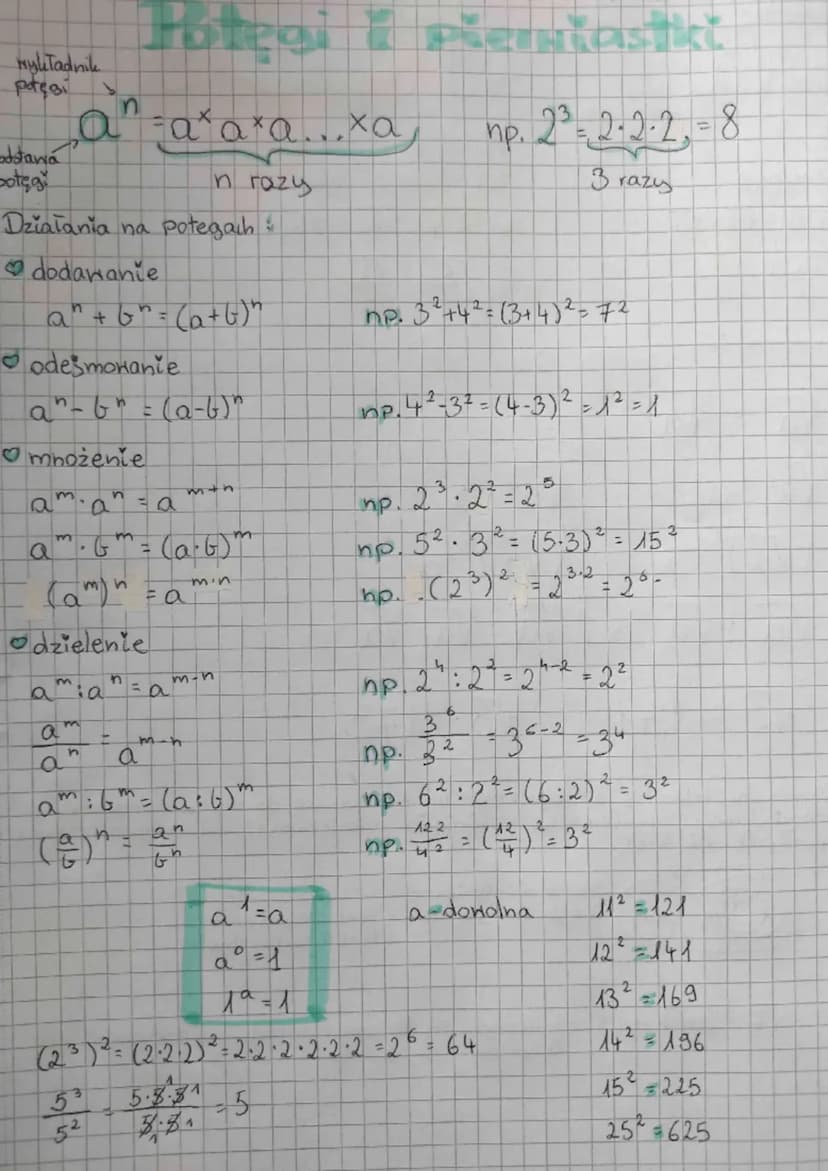 Potęgi i pierwiastki
wykładnik
potęgi
aⁿ = a × a × a ... × a, np. 2³ = 2·2·2, = 8
podstawa
potęgi
n razy 3 razy
Działania na potęgach:
dodawanie
aⁿ + bⁿ = (a+b)ⁿ np. 3² + 4² = (3+4)² = 7²
odejmowanie
aⁿ - bⁿ = (a-b)ⁿ np. 4² - 3² = (4-3)² = 1² = 1
mnożenie
aᵐ · aⁿ = aᵐ⁺ⁿ np. 2³ · 2² = 2⁵
aᵐ · bᵐ = (a·b)ᵐ np. 5² · 3² = (5·3)² = 15²
(aᵐ)ⁿ = a^(m·n) np. (2³)² = 2^(3·2) = 2⁶
dzielenie
aᵐ : aⁿ = aᵐ⁻ⁿ np. 2⁴ : 2² = 2⁴⁻² = 2²
aᵐ/aⁿ = aᵐ⁻ⁿ np. 3⁶/3² = 3⁶⁻² = 3⁴
aᵐ : bᵐ = (a:b)ᵐ np. 6² : 2² = (6:2)² = 3²
(a/b)ⁿ = aⁿ/bⁿ np. 12²/4² = (12/4)² = 3²
a¹ = a a - dowolna 11² = 121
a⁰ = 1 12² = 141
1ᵃ = 1 13² = 169
(2³)² = (2·2·2)² = 2·2·2·2·2·2 = 2⁶ = 64 14² = 196
5³/5² = 5·5·5/5·5 = 5 15² = 225
25² = 625